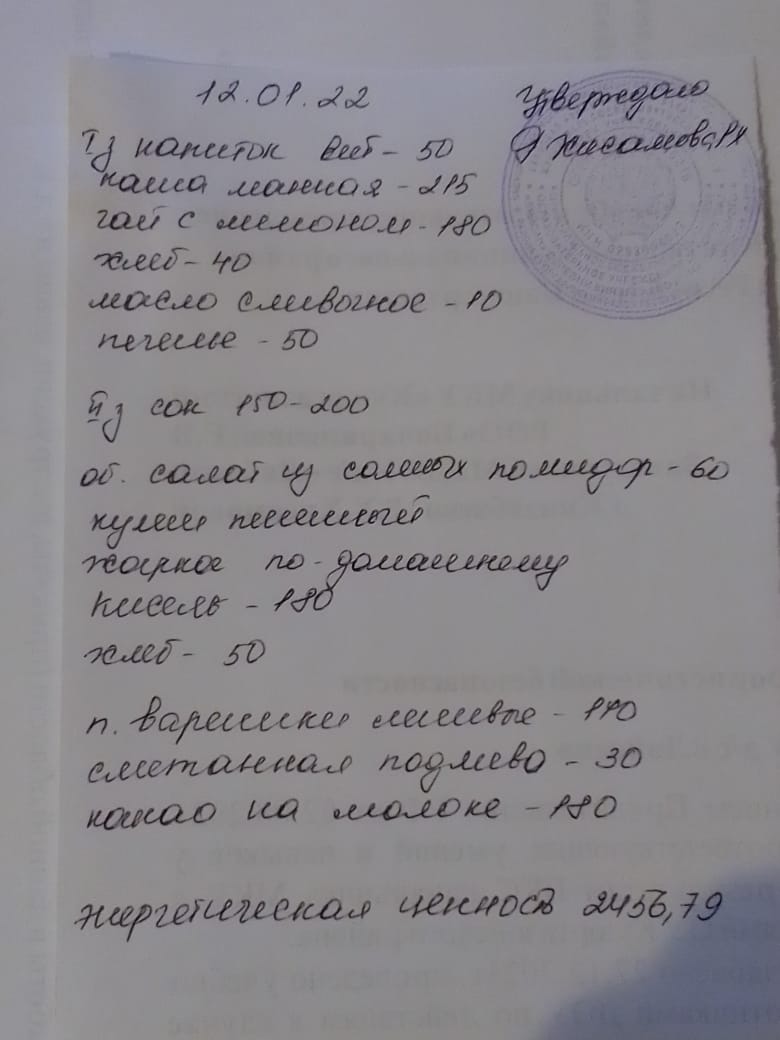 12.01.22
Утверждаю
Хисамова
I з напиток вит - 50
каша манная - 215
чай с лимоном - 180
хлеб - 40
масло сливочное - 10
печенье - 50
II з сок 150-200
об. салат из соленых помидор - 60
кулеш пшенный
жаркое по-домашнему
кисель - 180
хлеб - 50
п. вареники ленивые - 170
сметанная подлива - 30
какао на молоке - 180
энергетическая ценность 2456,79